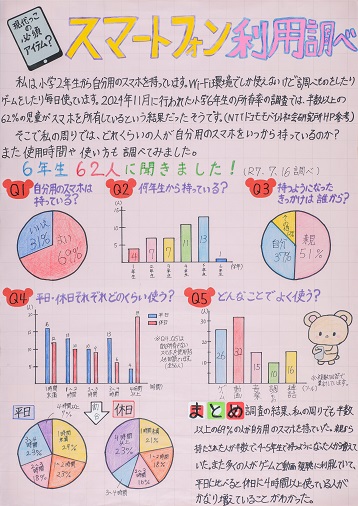 現代っこの
必須
アイテム?
スマートフォン利用調べ
私は、小学2年生から自分用のスマホを持っています。Wi-Fi環境でしか使えないけど調べごとをしたり
ゲームをしたり毎日使っています。2024年11月に行われた小学6年生の所有率の調査では、半数以上の
62%の児童がスマホを所有しているという結果だったそうです。(NTTドコモモバイル社会研究所HP参考)
そこで私の周りでは、どれくらいの人が自分用のスマホをいつから持っているのか?
また使用時間や使い方も調べてみました。
6年生62人に聞きました! (R7.7.16調べ)
Q1 自分用のスマホは
持っている?
いいえ
31%
はい
69%
Q2 何年生から持っている?
(人)
4
7
7
11
13
1年生
2年生
3年生
4年生
5年生
6年生
Q3 持つようになった
きっかけは誰から?
自分
37%
親
51%
Q4 平日・休日それぞれどのくらい使う?
(人)
平日
休日
(時間)
Q5 どんなことでよく使う?
(人)
26
32
15
10
16
ゲーム
動画
音楽
調べ
通話
平日
休日
4時間以上
1時間未満
28%
1〜2時間
23%
2〜3時間
18%
4時間以上
23%
1時間未満
21%
1〜2時間
3〜4時間
まとめ 調査の結果、私の周りでも半数
以上の69%の人が自分のスマホを持っていた。親から
持たされた人が半数で4・5年生で持つようになった人が増えて
いた。また多くの人がゲームや動画視聴に利用していて、
平日に比べると休日に4時間以上使っている人が
かなり増えていることがわかった。